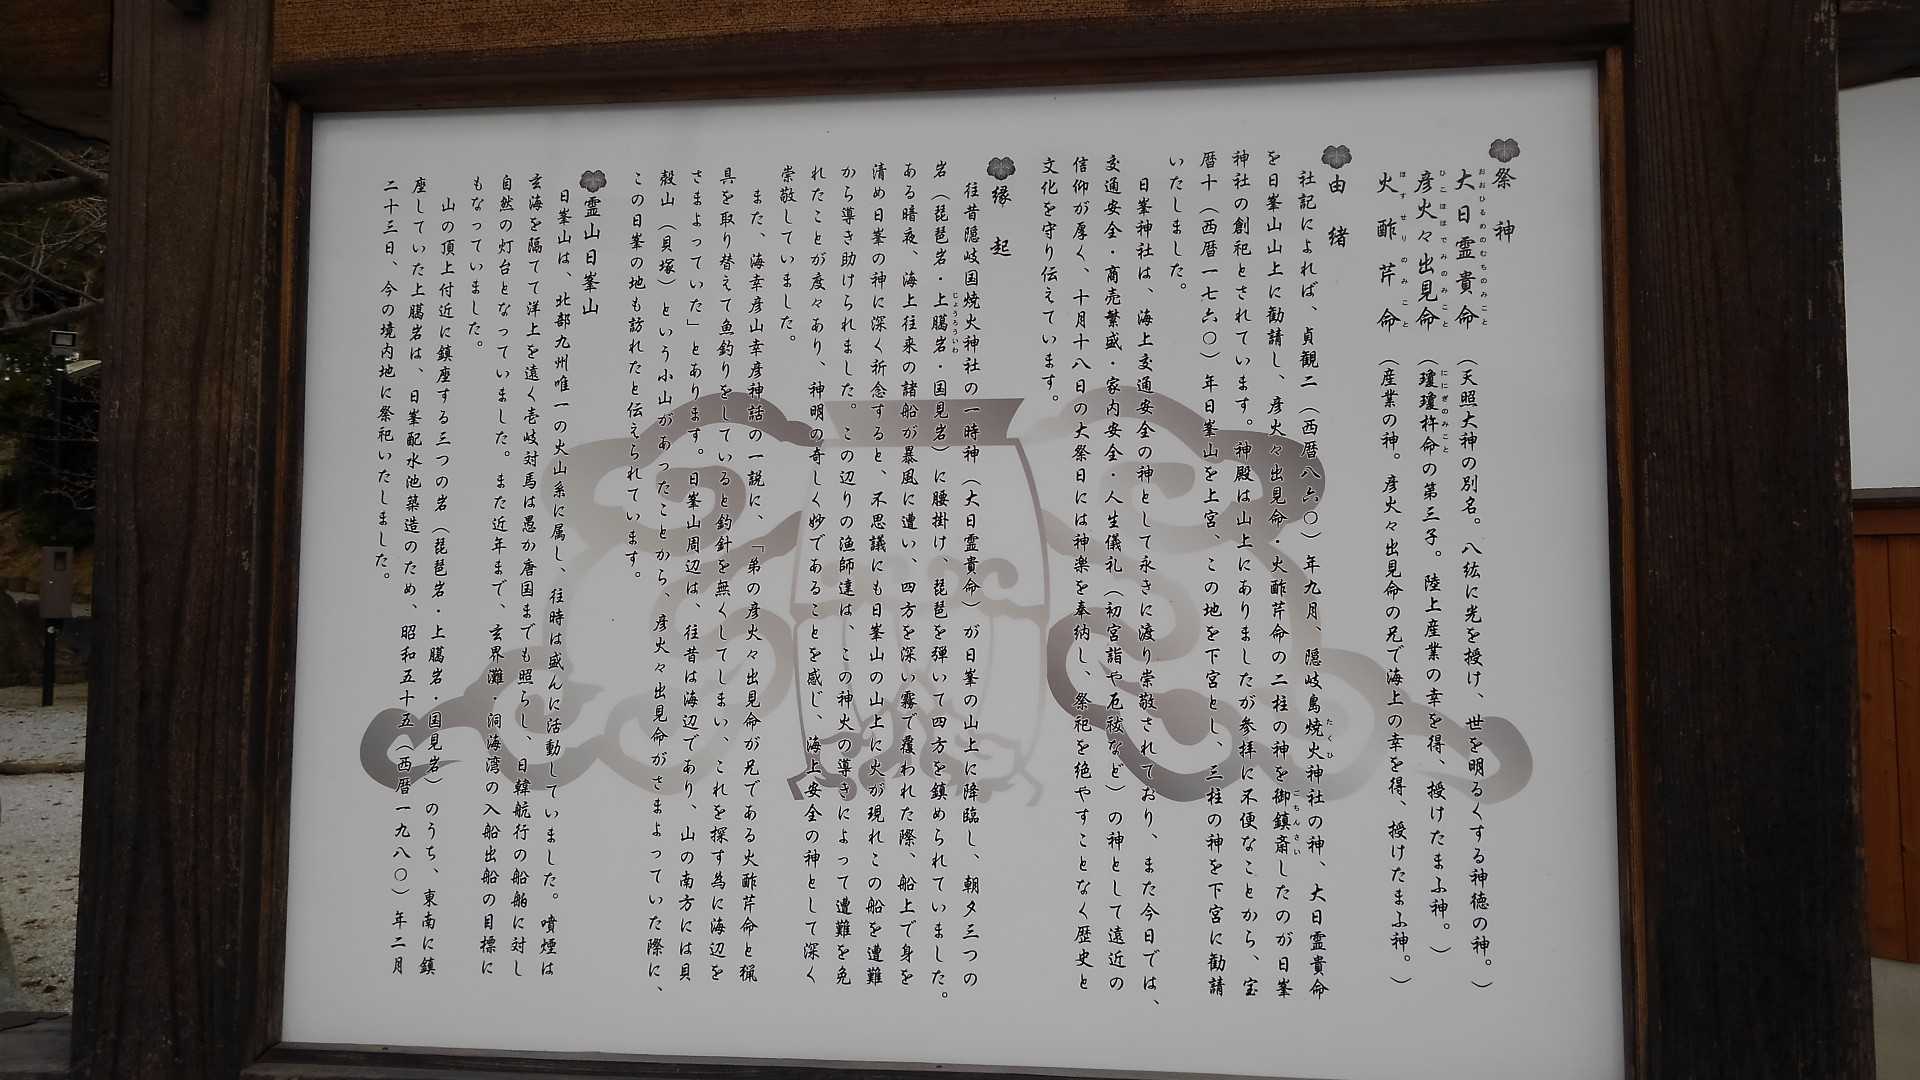 祭神
大日霊貴命（天照大神の別名。八紘に光を授け、世を明るくする神徳の神。）
おおひるめのむちのみこと
彦火々出見命（瓊瓊杵命の第三子。陸上産業の幸を得、授けたまふ神。）
ひこほほでみのみこと
ににぎのみこと
火酢芹命（産業の神。彦火々出見命の兄で海上の幸を得、授けたまふ神。）
ほすせりのみこと
由緒
社記によれば、貞観二（西暦八六〇）年九月、隠岐島焼火神社の神、大日霊貴命
たくひ
を日峯山山上に勧請し、彦火々出見命・火酢芹命の二柱の神を御鎮斎したのが日峯
ごちんさい
神社の創祀とされています。神殿は山上にありましたが参拝に不便なことから、宝
暦十（西暦一七六〇）年日峯山を上宮、この地を下宮とし、三柱の神を下宮に勧請
いたしました。
日峯神社は、海上交通安全の神として永きに渡り崇敬されており、また今日では、
交通安全・商売繁盛・家内安全・人生儀礼（初宮詣や厄祓など）の神として遠近の
信仰が厚く、十月十八日の大祭日には神楽を奉納し、祭祀を絶やすことなく歴史と
文化を守り伝えています。
縁起
往昔隠岐国焼火神社の一時神（大日霊貴命）が日峯の山上に降臨し、朝夕三つの
岩（琵琶岩・上臈岩・国見岩）に腰掛け、琵琶を弾いて四方を鎮められていました。
じょうろういわ
ある暗夜、海上往来の諸船が暴風に遭い、四方を深い霧で覆われた際、船上で身を
清め日峯の神に深く祈念すると、不思議にも日峯山の山上に火が現れこの船を遭難
から導き助けられました。この辺りの漁師達は、この神火の導きによって遭難を免
れたことが度々あり、神明の奇しく妙であることを感じ、海上安全の神として深く
崇敬していました。
また、海幸彦山幸彦神話の一説に、「弟の彦火々出見命が兄である火酢芹命と猟
具を取り替えて魚釣りをしていると釣針を無くしてしまい、これを探す為に海辺を
さまよっていた」とあります。日峯山周辺は、往昔は海辺であり、山の南方には貝
殻山（貝塚）という小山があったことから、彦火々出見命がさまよっていた際に、
この日峯の地も訪れたと伝えられています。
霊山日峯山
日峯山は、北部九州唯一の火山系に属し、往時は盛んに活動していました。噴煙は
玄海を隔てて洋上を遠く壱岐対馬は愚か唐国までも照らし、日韓航行の船舶に対し
自然の灯台となっていました。また近年まで、玄界灘・洞海湾の入船出船の目標に
もなっていました。
山の頂上付近に鎮座する三つの岩（琵琶岩・上臈岩・国見岩）のうち、東南に鎮
座していた上臈岩は、日峯配水池築造のため、昭和五十五（西暦一九八〇）年二月
二十三日、今の境内地に祭祀いたしました。